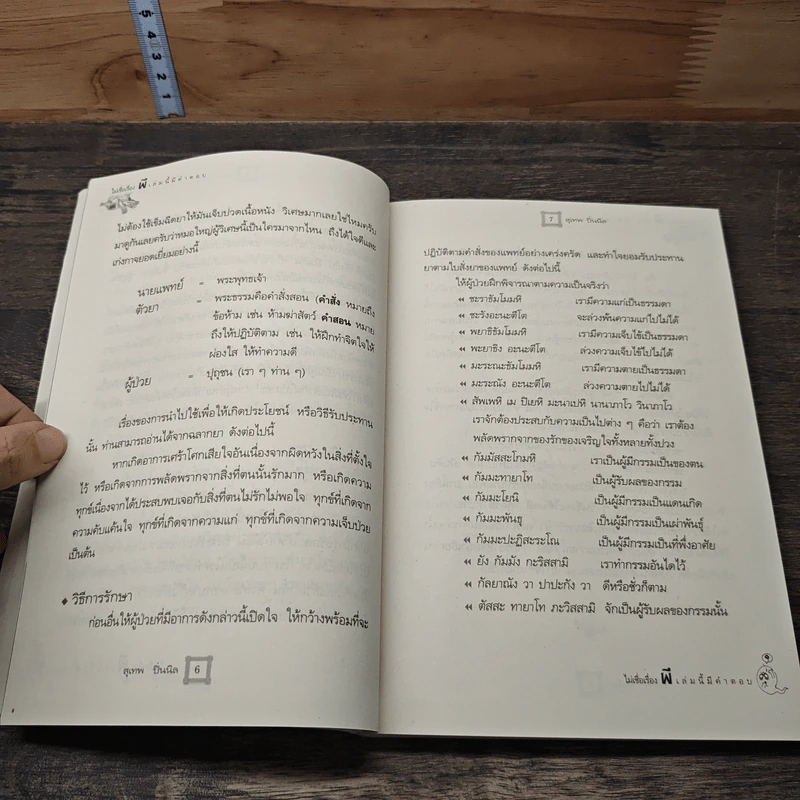 5
4
3
2
1
ไม่เชื่อเรื่อง ผี เล่มนี้มีคำตอบ
ไม่ต้องใช้เข็มฉีดยาให้มันเจ็บปวดเนื้อหนัง วิเศษมากเลยใช่ไหมครับ
มาดูกันเลยครับว่าหมอใหญ่ผู้วิเศษนี้เป็นใครมาจากไหน ถึงได้ใจดีและ
เก่งกาจยอดเยี่ยมอย่างนี้
นายแพทย์ = พระพุทธเจ้า
ตัวยา = พระธรรมคือคำสั่งสอน (คำสั่ง หมายถึง
ข้อห้าม เช่น ห้ามฆ่าสัตว์ คำสอน หมาย
ถึงให้ปฏิบัติตาม เช่น ให้ฝึกทำจิตใจให้
ผ่องใส ให้ทำความดี
ผู้ป่วย = ปุถุชน (เรา ๆ ท่าน ๆ)
เรื่องของการนำไปใช้เพื่อให้เกิดประโยชน์ หรือวิธีรับประทาน
นั้น ท่านสามารถอ่านได้จากฉลากยา ดังต่อไปนี้
หากเกิดอาการเศร้าโศกเสียใจอันเนื่องจากผิดหวังในสิ่งที่ตั้งใจ
ไว้ หรือเกิดจากการพลัดพรากจากสิ่งที่ตนนั้นรักมาก หรือเกิดความ
ทุกข์เนื่องจากได้ประสบพบเจอกับสิ่งที่ตนไม่รักไม่พอใจ ทุกข์ที่เกิดจาก
ความคับแค้นใจ ทุกข์ที่เกิดจากความแก่ ทุกข์ที่เกิดจากความเจ็บป่วย
เป็นต้น
◆ วิธีการรักษา
ก่อนอื่นให้ผู้ป่วยที่มีอาการดังกล่าวนี้เปิดใจ ให้กว้างพร้อมที่จะ
สุเทพ ปิ่นนิล 6
7 สุเทพ ปิ่นนิล
ปฏิบัติตามคำสั่งของแพทย์อย่างเคร่งครัด และทำใจยอมรับประทาน
ยาตามใบสั่งยาของแพทย์ ดังต่อไปนี้
ให้ผู้ป่วยฝึกพิจารณาตามความเป็นจริงว่า
ชะราธัมโมมหิ เรามีความแก่เป็นธรรมดา
ชะรังอะนะตีโต จะล่วงพ้นความแก่ไปไม่ได้
พยาธิธัมโมมหิ เรามีความเจ็บไข้เป็นธรรมดา
พะยาธิง อะนะตีโต ล่วงความเจ็บไข้ไปไม่ได้
มะระณะธัมโมมหิ เรามีความตายเป็นธรรมดา
มะระณัง อะนะตีโต ล่วงความตายไปไม่ได้
สัพเพหิ เม ปิเยหิ มะนาเปหิ นานาภาโว วินาภาโว
เราจักต้องประสบกับความเป็นไปต่าง ๆ คือว่า เราต้อง
พลัดพรากจากของรักของเจริญใจทั้งหลายทั้งปวง
กัมมัสสะโกมหิ เราเป็นผู้มีกรรมเป็นของตน
กัมมะทายาโท เป็นผู้รับผลของกรรม
กัมมะโยนิ เป็นผู้มีกรรมเป็นแดนเกิด
กัมมะพันธุ เป็นผู้มีกรรมเป็นเผ่าพันธุ์
กัมมะปะฏิสะระโณ เป็นผู้มีกรรมเป็นที่พึ่งอาศัย
ยัง กัมมัง กะริสสามิ เราทำกรรมอันใดไว้
กัลยาณัง วา ปาปะกัง วา ดีหรือชั่วก็ตาม
ตัสสะ ทายาโท ภะวิสสามิ จักเป็นผู้รับผลของกรรมนั้น
ไม่เชื่อเรื่อง ผี เล่มนี้มีคำตอบ